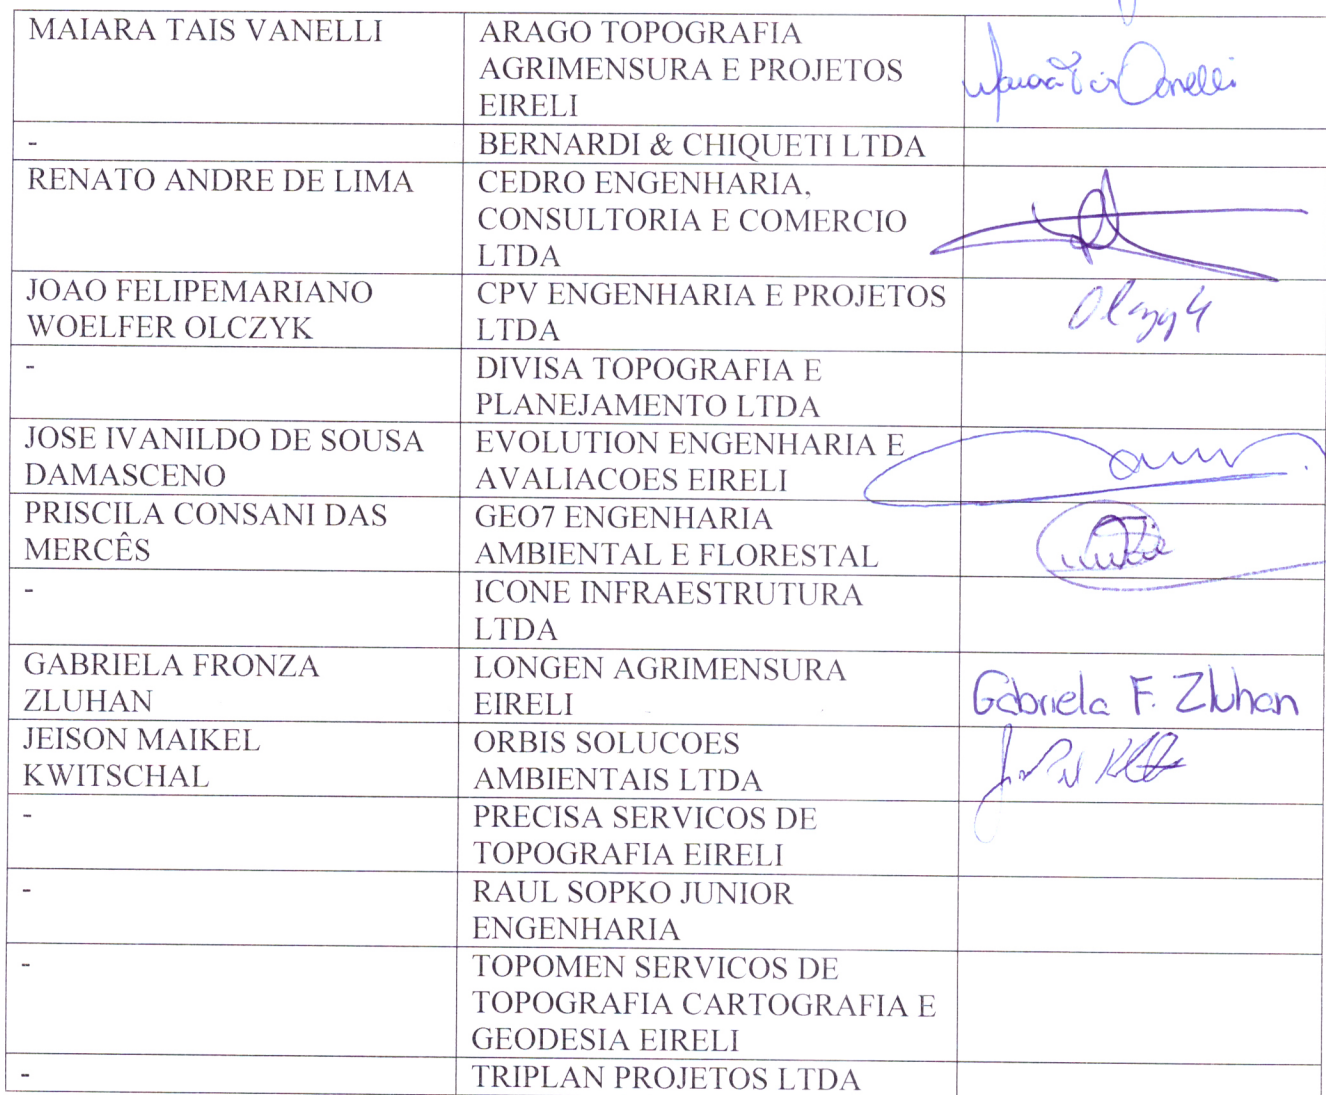 MAIARA TAIS VANELLI
ARAGO TOPOGRAFIA
AGRIMENSURA E PROJETOS
EIRELI
-
BERNARDI & CHIQUETI LTDA
RENATO ANDRE DE LIMA
CEDRO ENGENHARIA,
CONSULTORIA E COMERCIO
LTDA
JOAO FELIPEMARIANO
WOELFER OLCZYK
CPV ENGENHARIA E PROJETOS
LTDA
-
DIVISA TOPOGRAFIA E
PLANEJAMENTO LTDA
JOSE IVANILDO DE SOUSA
DAMASCENO
EVOLUTION ENGENHARIA E
AVALIACOES EIRELI
PRISCILA CONSANI DAS
MERCÊS
GEO7 ENGENHARIA
AMBIENTAL E FLORESTAL
-
ICONE INFRAESTRUTURA
LTDA
GABRIELA FRONZA
ZLUHAN
LONGEN AGRIMENSURA
EIRELI
Gabriela F. Zluhan
JEISON MAIKEL
KWITSCHAL
ORBIS SOLUCOES
AMBIENTAIS LTDA
-
PRECISA SERVICOS DE
TOPOGRAFIA EIRELI
-
RAUL SOPKO JUNIOR
ENGENHARIA
-
TOPOMEN SERVICOS DE
TOPOGRAFIA CARTOGRAFIA E
GEODESIA EIRELI
-
TRIPLAN PROJETOS LTDA